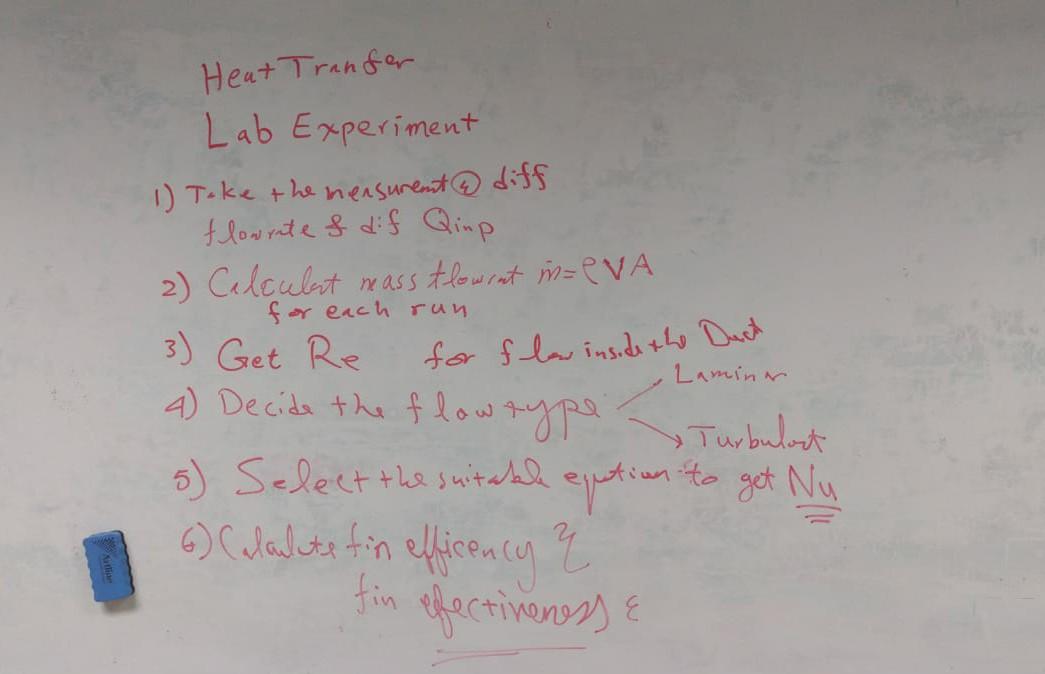 Heat Tranfer
Lab Experiment
1) Take the measuremt @ diff
flowrate & dif Qinp
2) Calculat mass flowrat ṁ=ρVA
for each run
3) Get Re for flow inside the Duct
4) Decide the flow type
Laminar
Turbulat
5) Select the suitable eqution to get Nu
6) Calculate fin efficency η
fin efectiveness ε
Artline